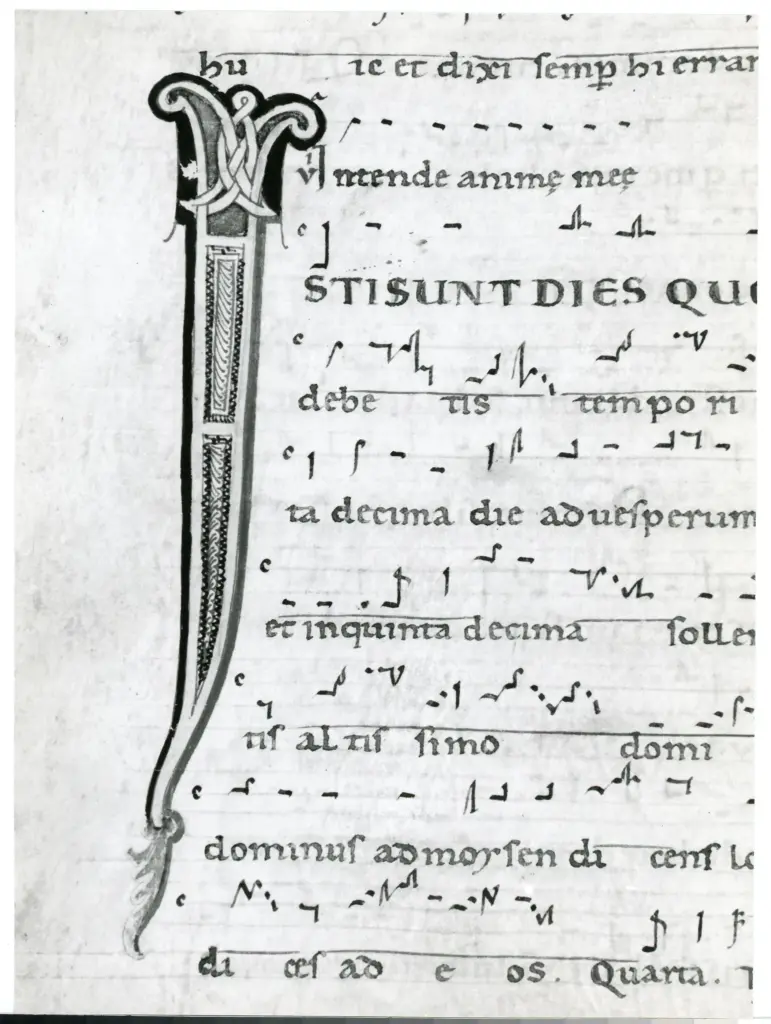 hu ic et dixi semp hi errar
V Intende animę meę
ISTI SUNT DIES QUO
debe tis tempo ri
ta decima die aduesperum
et inquinta decima solle
tis altis simo domi
dominus admoysen di cens Lo
di ces ad e os. Quarta.